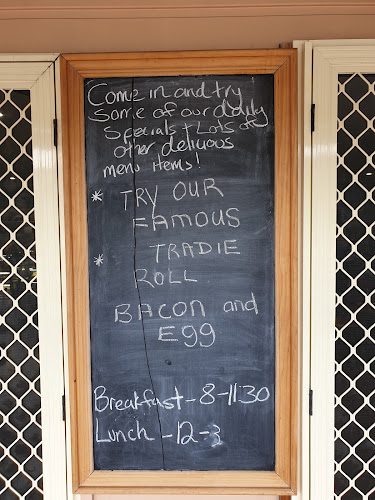 Come in and try!
Some of our daily
Specials + Lots of
other delicious
menu items!
* TRY OUR
FAMOUS
* TRADIE
ROLL.
BACON and
Egg
Breakfast - 8-11:30
Lunch - 12-3